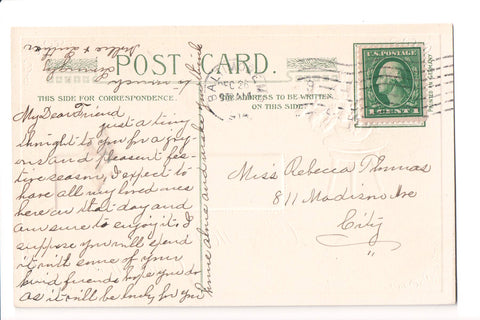 POST CARD.
THIS SIDE FOR CORRESPONDENCE.
THE ADDRESS TO BE WRITTEN
ON THIS SIDE
U.S. POSTAGE
1 CENT 1
My Dear Friend
just a tiny
thought to you for a joy-
ous and pleasant fes-
tive season, I expect to
have all my loved ones
here on that day and
am sure to enjoy it. I
suppose you will spend
it with some of your
kind friends hope you do
as it will be lonely for you
home alone and make you think
Sincerely
Miss Rebecca Thomas
811 Madison Ave
City